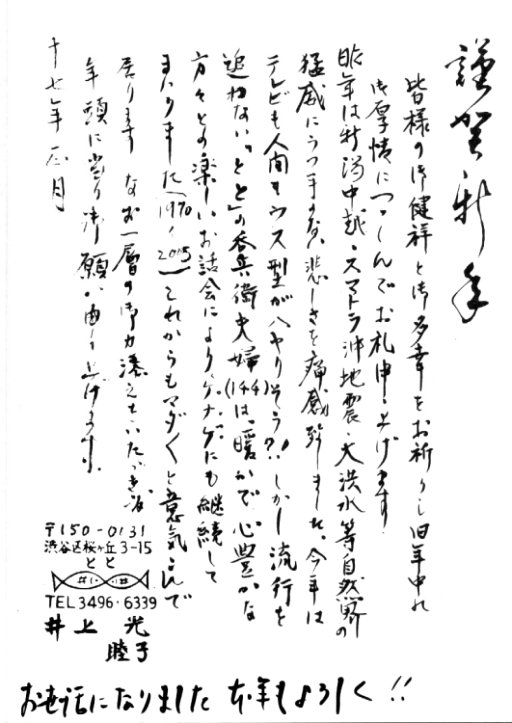 謹賀新年
皆様の御健祥と御多幸をお祈りし旧年中の
御厚情につつしんでお礼申し上げます
昨年は新潟中越・スマトラ沖地震・大洪水等自然界の
猛威にうつ手もない悲しさを痛感致しました。今年は
テレビも人間もウス型がハヤりそう?!しかし流行を
追わない「とと」の呑兵衛夫婦(144)は、暖かで心豊かな
方々との楽しいお話会によりケナゲにも継続して
まいりました(1970/2005)これからもマダマダと意気こんで
居ります なお一層の御力添えをいただき度
年頭に当り御願い申し上げます。
十七年 正月
〒150-0031
渋谷区桜ヶ丘3-15
とと
TEL3496・6339
井上 光
睦子
お世話になりました 本年もよろしく!!